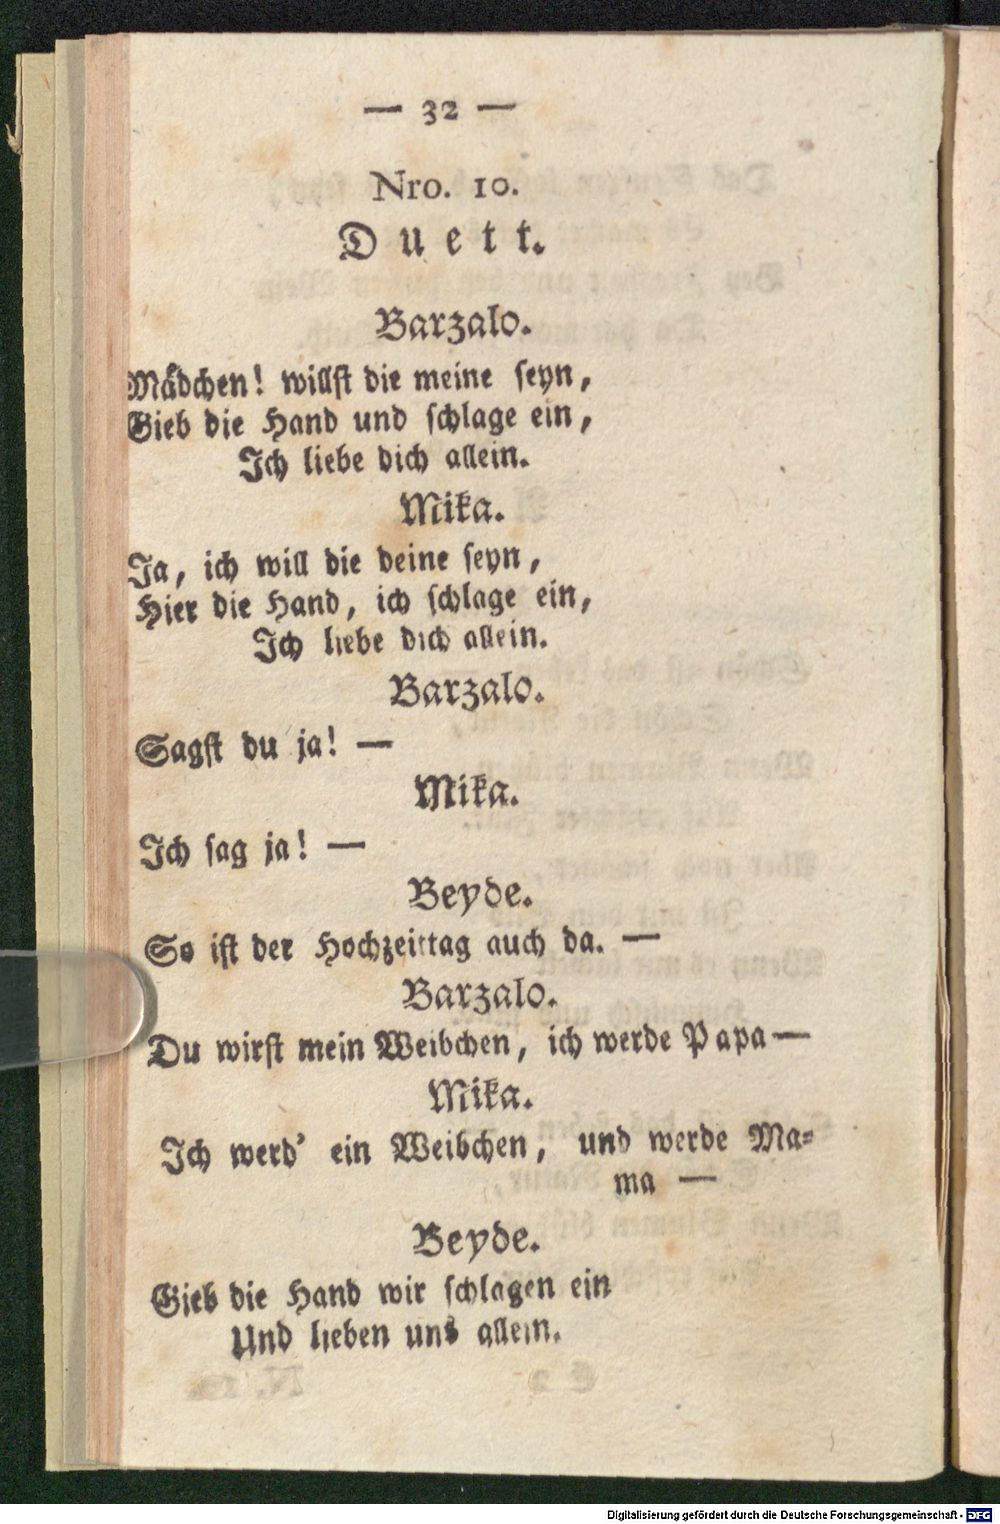 — 32 —
Nro. 10.
Duett.
Barzalo.
Mädchen! willst die meine seyn,
Gieb die Hand und schlage ein,
Ich liebe dich allein.
Mika.
Ja, ich will die deine seyn,
Hier die Hand, ich schlage ein,
Ich liebe dich allein.
Barzalo.
Sagst du ja! —
Mika.
Ich sag ja! —
Beyde.
So ist der Hochzeittag auch da. —
Barzalo.
Du wirst mein Weibchen, ich werde Papa —
Mika.
Ich werd' ein Weibchen, und werde Ma-
ma —
Beyde.
Gieb die Hand wir schlagen ein
Und lieben uns allein.
Digitalisierung gefördert durch die Deutsche Forschungsgemeinschaft - DFG